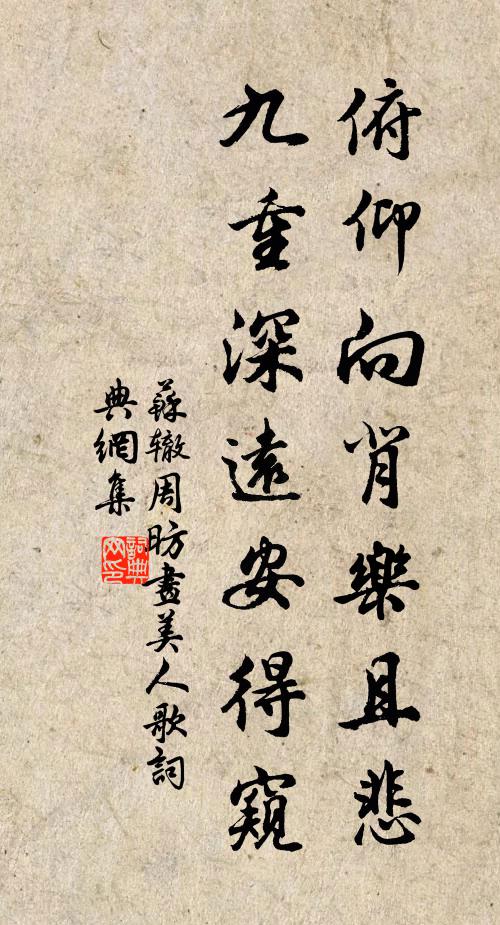 俯仰向背樂且悲
九重深遠安得窺
蘇轍周昉畫美人歌詞
典網集
詞典网印